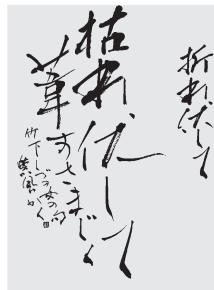 折れ伏して
枯れ伏して
葦すさまじく
竹下しづの女の句